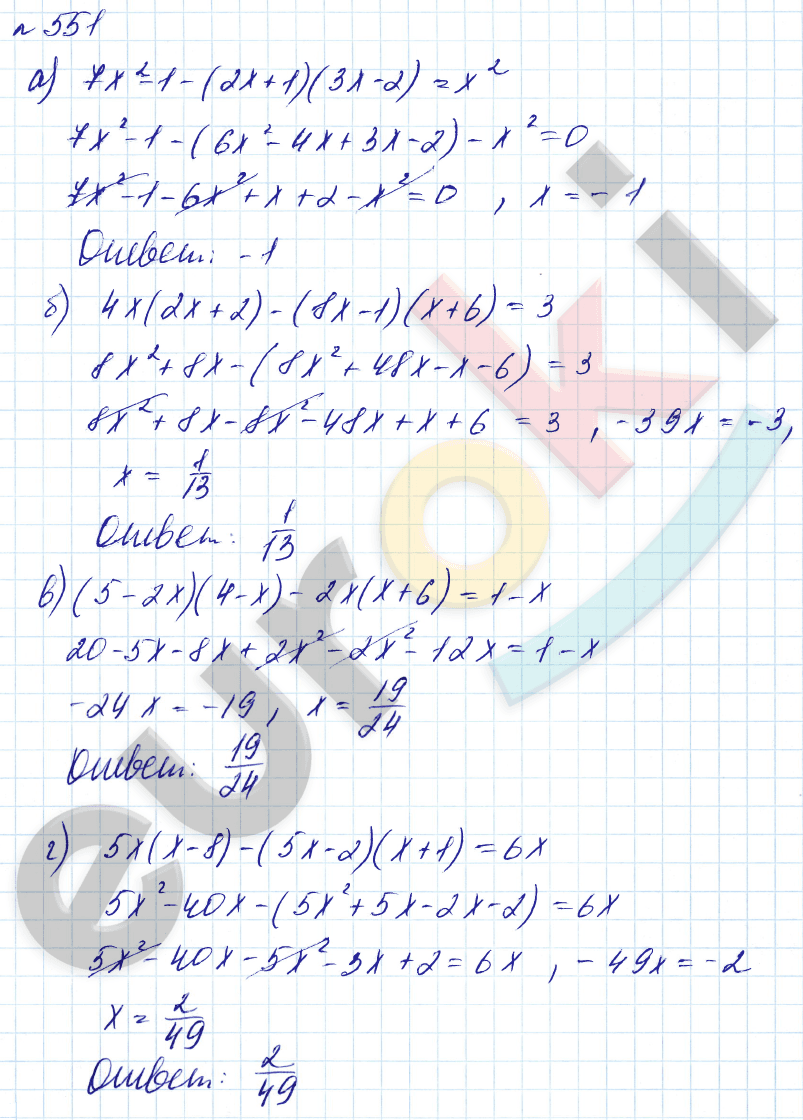 № 551
а) 7x² - 1 - (2x+1)(3x-2) = x²
7x² - 1 - (6x² - 4x + 3x - 2) - x² = 0
7x² - 1 - 6x² + x + 2 - x² = 0 , x = - 1
Ответ: -1
б) 4x(2x+2) - (8x-1)(x+6) = 3
8x² + 8x - (8x² + 48x - x - 6) = 3
8x² + 8x - 8x² - 48x + x + 6 = 3 , -39x = -3,
x = 1/13
Ответ: 1/13
в) (5-2x)(4-x) - 2x(x+6) = 1-x
20 - 5x - 8x + 2x² - 2x² - 12x = 1 - x
-24x = -19, x = 19/24
Ответ: 19/24
г) 5x(x-8) - (5x-2)(x+1) = 6x
5x² - 40x - (5x² + 5x - 2x - 2) = 6x
5x² - 40x - 5x² - 3x + 2 = 6x , - 49x = -2
x = 2/49
Ответ: 2/49
euroki